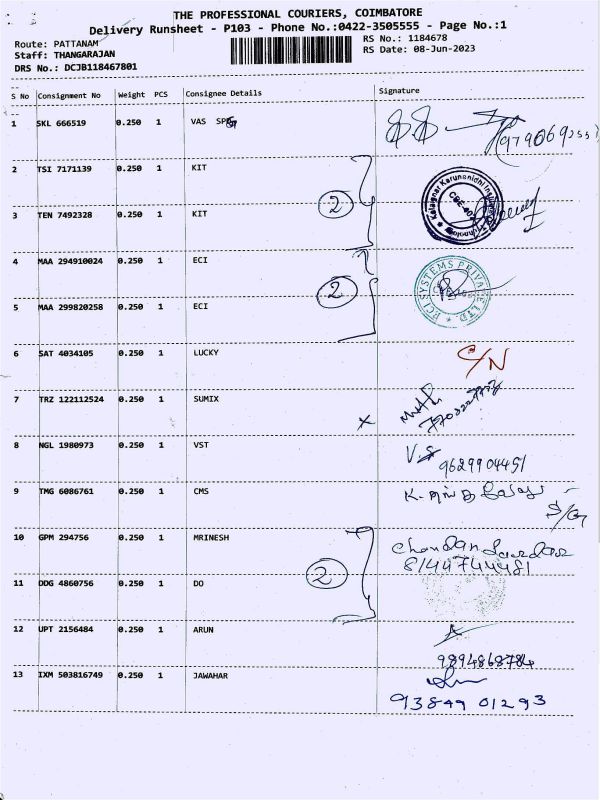 THE PROFESSIONAL COURIERS, COIMBATORE
Delivery Runsheet - P103 - Phone No.:0422-3505555 - Page No.:1
Route: PATTANAM
RS No.: 1184678
Staff: THANGARAJAN
RS Date: 08-Jun-2023
DRS No.: DCJB118467801
S No Consignment No Weight PCS Consignee Details Signature
1 SKL 666519 0.250 1 VAS
2 TSI 7171139 0.250 1 KIT
2
3 TEN 7492328 0.250 1 KIT
4 MAA 294910024 0.250 1 ECI
ECI SYSTEMS PRIVATE LTD.
2
5 MAA 299820258 0.250 1 ECI
6 SAT 4034105 0.250 1 LUCKY C/N
7 TRZ 122112524 0.250 1 SUMIX
X
8 NGL 1980973 0.250 1 VST
9629904451
9 TMG 6086761 0.250 1 CMS
10 GPM 294756 0.250 1 MRINESH
Chandan
8144744481
2
11 DDG 4860756 0.250 1 DO
12 UPT 2156484 0.250 1 ARUN
9894868784
13 IXM 503816749 0.250 1 JAWAHAR
93849 01293